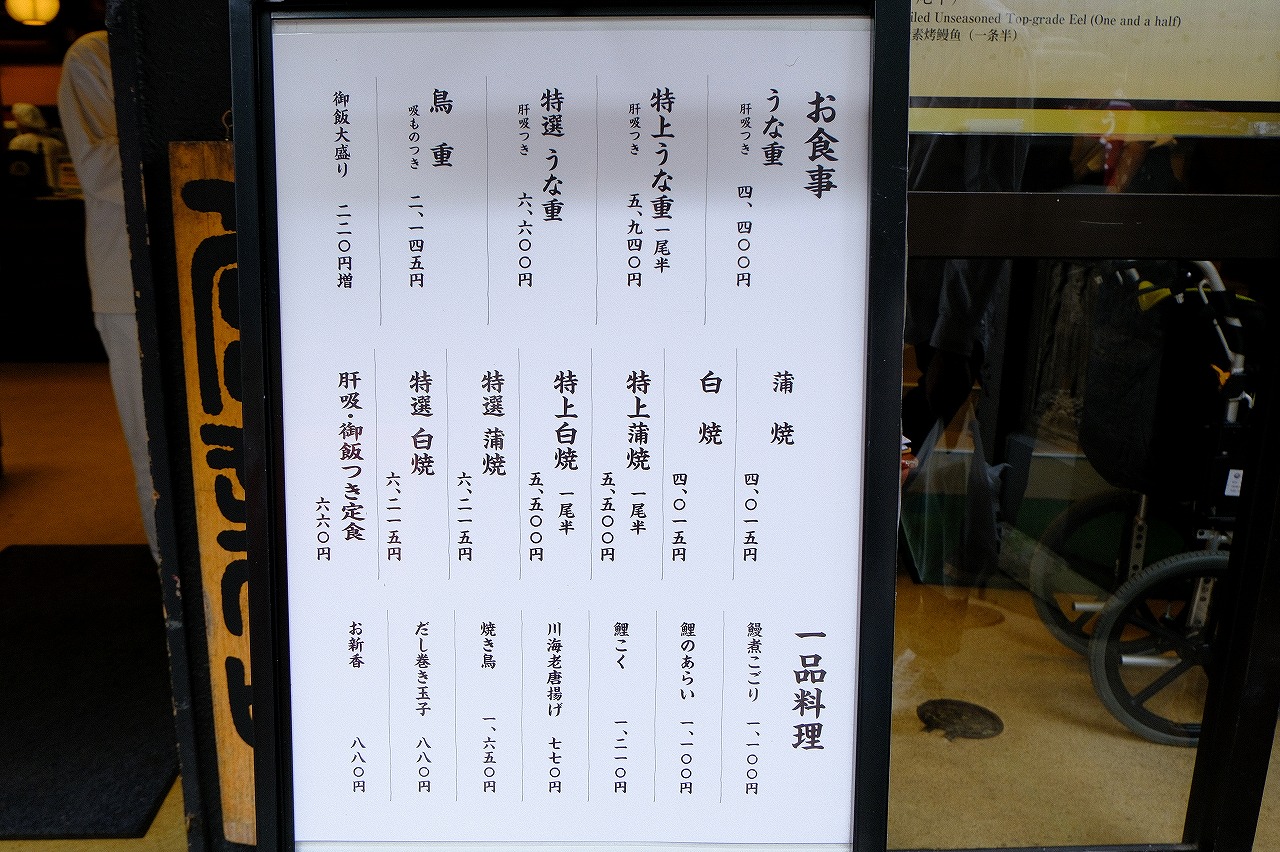 お食事
うな重
肝吸つき
四、四〇〇円
特上うな重 一尾半
肝吸つき
五、九四〇円
特選 うな重
肝吸つき
六、六〇〇円
鳥重
吸ものつき
二、一四五円
御飯大盛り 二二〇円増
蒲焼
四、〇一五円
白焼
四、〇一五円
特上蒲焼 一尾半
五、五〇〇円
特上白焼 一尾半
五、五〇〇円
特選 蒲焼
六、二一五円
特選 白焼
六、二一五円
肝吸・御飯つき定食
六六〇円
一品料理
鰻煮こごり 一、一〇〇円
鯉のあらい 一、一〇〇円
鯉こく 一、二一〇円
川海老唐揚げ 七七〇円
焼き鳥 一、六五〇円
だし巻き玉子 八八〇円
お新香 八八〇円
iled Unseasoned Top-grade Eel (One and a half)
素烤鳗鱼（一条半）